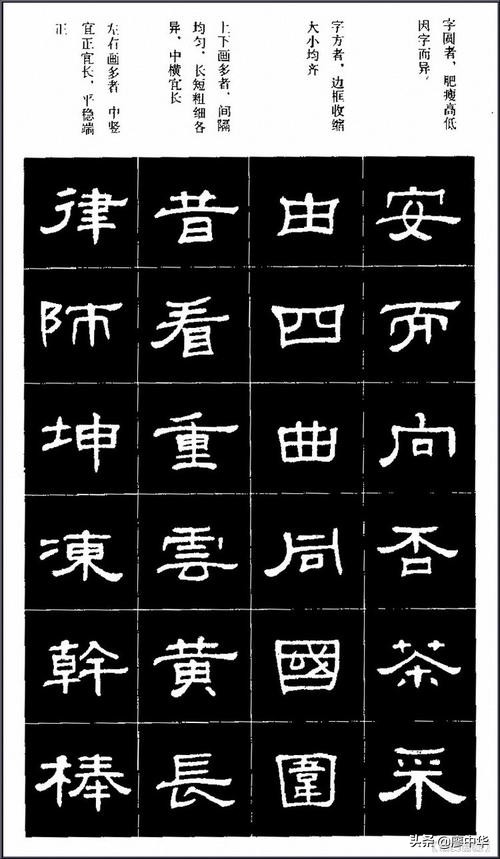 字圆者，肥瘦高低
因字而异。
字方者，边框收缩
大小均齐
上下画多者，间隔
均匀，长短粗细各
异，中横宜长
左右画多者 中竖
宜正宜长，平稳端
正
安
而
向
否
茶
采
由
四
曲
同
國
圍
昔
看
重
雲
黄
長
律
师
坤
凍
幹
棒
头条 @廖中华